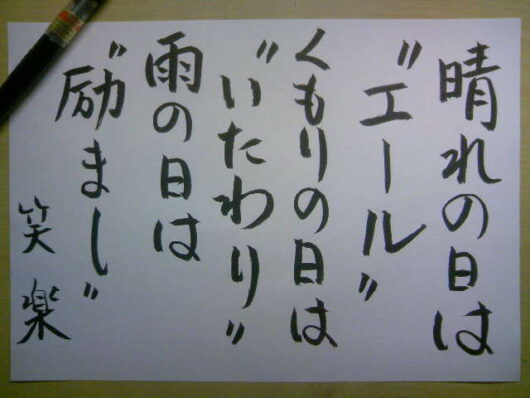 晴れの日は
"エール"
くもりの日は
"いたわり"
雨の日は
"励まし"
笑楽